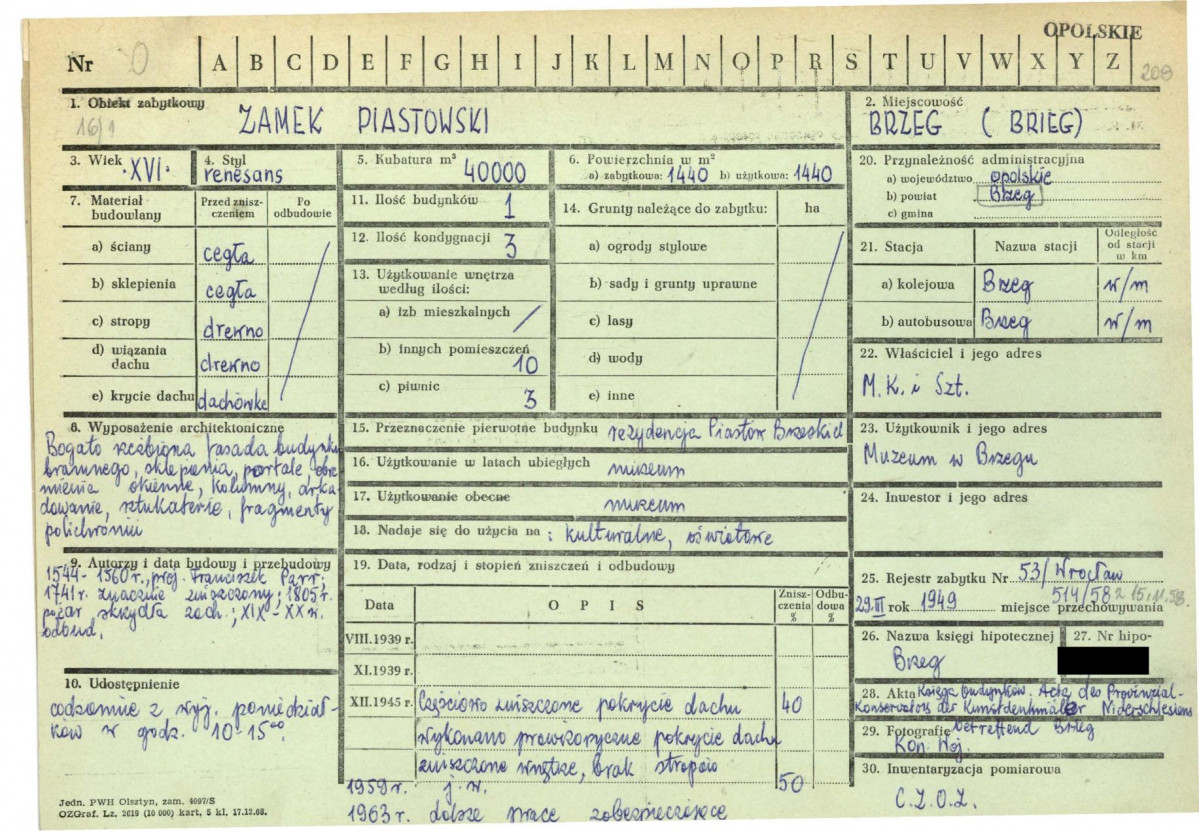 OPOLSKIE
Nr 0 A B C D E F G H I J K L M N O P R S T U V W X Y Z 209
1. Obiekt zabytkowy
16/1
ZAMEK PIASTOWSKI
2. Miejscowość
BRZEG ( BRIEG)
3. Wiek
XVI.
4. Styl
renesans
5. Kubatura m³
40000
6. Powierzchnia w m²
a) zabytkowa: 1440 b) użytkowa: 1440
7. Materiał budowlany
Przed zniszczeniem
Po odbudowie
a) ściany cegła
b) sklepienia cegła
c) stropy drewno
d) wiązania dachu drewno
e) krycie dachu dachówka
8. Wyposażenie architektoniczne
Bogato rzeźbiona fasada budynku
bramnego, sklepienia, portale obra-
mienia okienne, kolumny, arka-
dowanie, sztukaterie, fragmenty
polichromii
9. Autorzy i data budowy i przebudowy
1544-1560 r., proj. Franciszek Parr;
1741 r. znacznie zniszczony; 1805 r.
pożar skrzydła zach.; XIX-XX w.
odbud.
10. Udostępnienie
codziennie z wyj. poniedział-
ków w godz. 10-15⁰⁰
11. Ilość budynków 1
12. Ilość kondygnacji 3
13. Użytkowanie wnętrza
według ilości:
a) izb mieszkalnych /
b) innych pomieszczeń 10
c) piwnic 3
14. Grunty należące do zabytku: ha
a) ogrody stylowe
b) sady i grunty uprawne
c) lasy
d) wody
e) inne
15. Przeznaczenie pierwotne budynku rezydencja Piastów Brzeskich
16. Użytkowanie w latach ubiegłych muzeum
17. Użytkowanie obecne muzeum
18. Nadaje się do użycia na : kulturalne, oświatowe
19. Data, rodzaj i stopień zniszczeń i odbudowy
Data OPIS Zniszczenia % Odbudowa %
VIII.1939 r.
XI.1939 r.
XII.1945 r. Częściowo zniszczone pokrycie dachu 40
wykonano prowizoryczne pokrycie dachu
zniszczone wnętrze, brak stropów 50
1959 r. j.w.
1963 r. dalsze prace zabezpieczające
20. Przynależność administracyjna
a) województwo opolskie
b) powiat Brzeg
c) gmina
21. Stacja Nazwa stacji Odległość od stacji w km
a) kolejowa Brzeg w/m
b) autobusowa Brzeg w/m
22. Właściciel i jego adres
M.K. i Szt.
23. Użytkownik i jego adres
Muzeum w Brzegu
24. Inwestor i jego adres
25. Rejestr zabytku Nr 53/Wrocław
514/58 z 15.11.58.
29.III rok 1949 miejsce przechowywania
26. Nazwa księgi hipotecznej
Brzeg
27. Nr hipo-
28. Akta Księga budynków. Acta des Provinzial-
Konservators der Kunstdenkmäler Niderschlesiens
betreffend Brieg
29. Fotografie
Kon. Woj.
30. Inwentaryzacja pomiarowa
C.Z.O.Z.
Jedn. PWH Olsztyn, zam. 4097/S
OZGraf. Lz. 2619 (10 000) kart, 5 kl. 17.12.68.